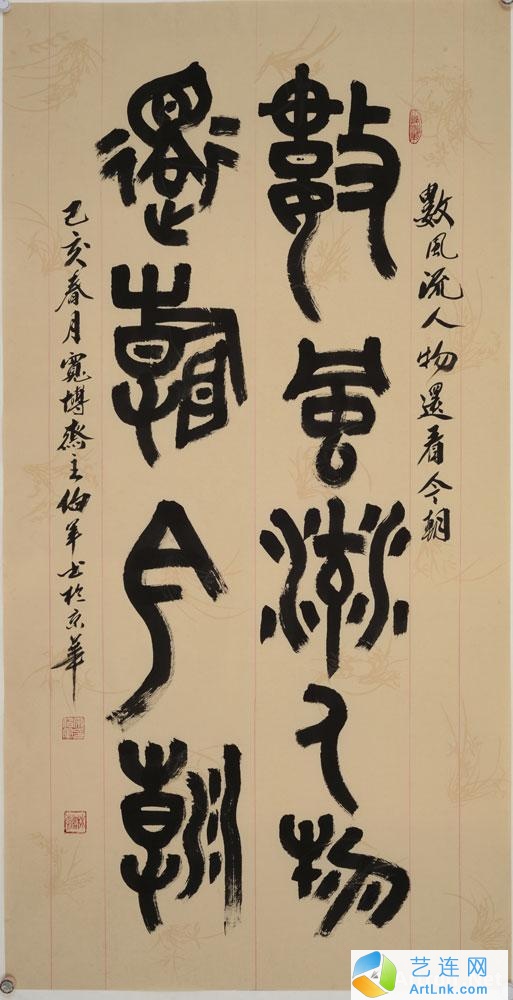 數風流人物還看今朝
數風流人物
還看今朝
己亥春月寬博齋主伯军书於京華
艺连网
ArtLnk.com